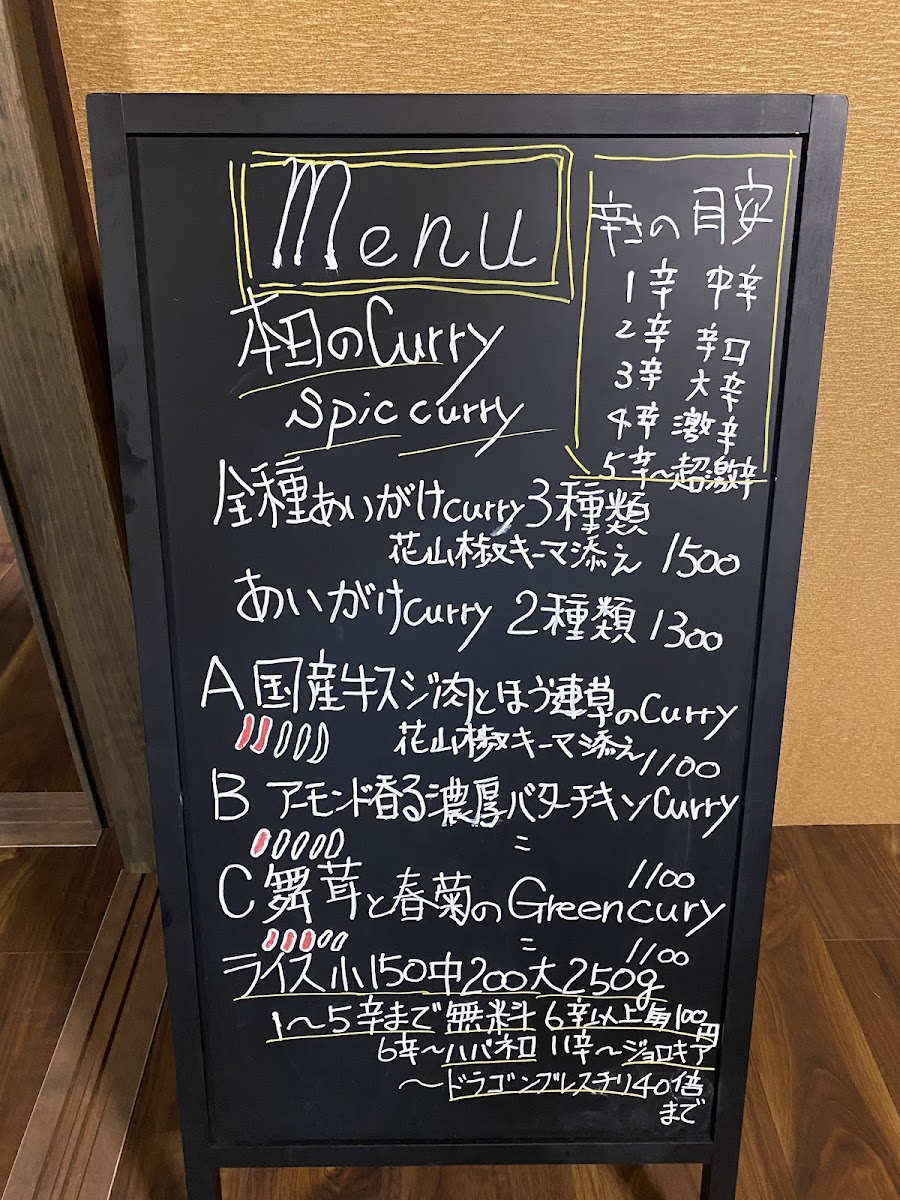 Menu
辛さの目安
1辛 中辛
2辛 辛口
3辛 大辛
4辛 激辛
5辛〜超激辛
本日のCurry
Spiccurry
全種あいがけcurry3種類
花山椒キーマ添え 1500
あいがけcurry 2種類 1300
A国産牛スジ肉とほう連草のCurry
花山椒キーマ添え1100
B アーモンド香る濃厚バターチキンCurry
1100
C舞茸と春菊のGreencury
1100
ライス小150中200大250g
1〜5辛まで無料 6辛以上毎100円
6辛〜ハバネロ 11辛〜ジョロキア
〜ドラゴンブレスチリ40倍
まで